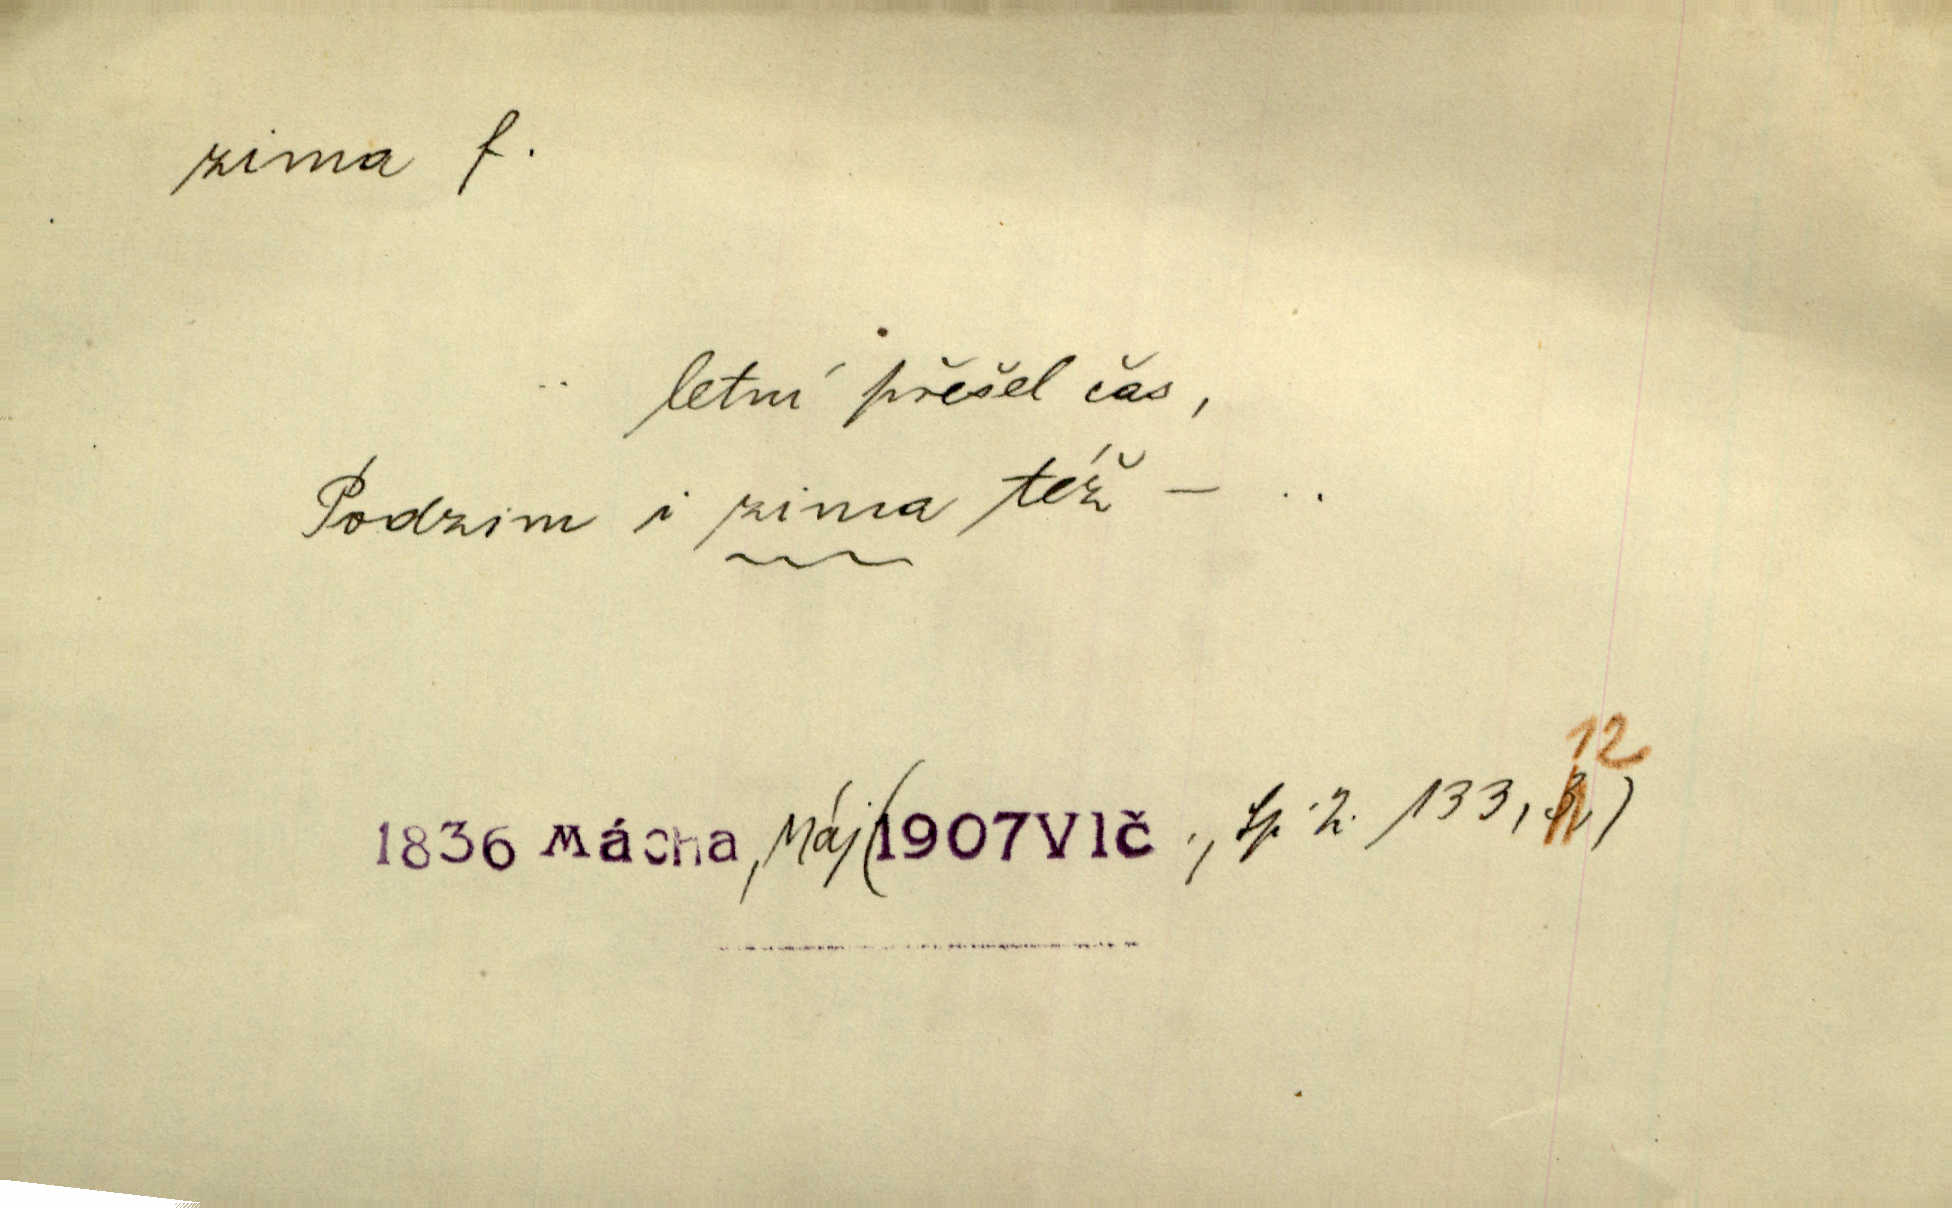 zima f.
.. letní přešel čas,
Podzim i zima též — ..
12
1836 Mácha, Máj (1907 Vlč., Sp. 2. 133, )